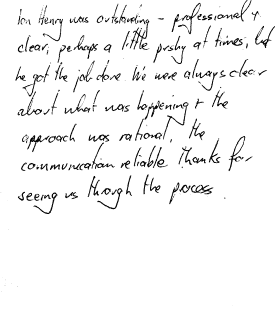 Ian Henry was outstanding - professional &
clear, perhaps a little pushy at times, but
he got the job done. We were always clear
about what was happening & the
approach was rational, the
communication reliable. Thanks for
seeing us through the process.